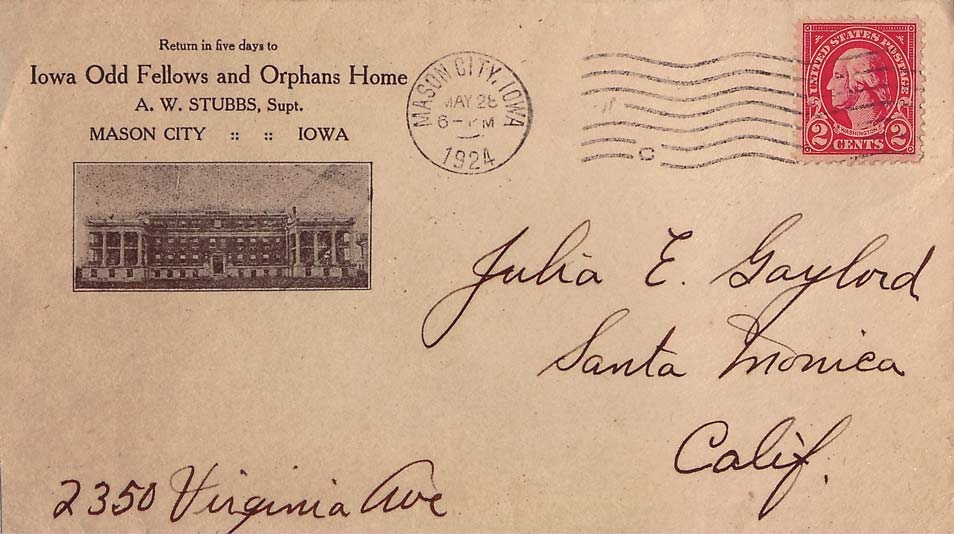 Return in five days to
Iowa Odd Fellows and Orphans Home
A. W. STUBBS, Supt.
MASON CITY :: :: IOWA
MASON CITY, IOWA
MAY 28
6-PM
1924
UNITED STATES POSTAGE
WASHINGTON
2 CENTS 2
C
Julia E. Gaylord
Santa Monica
Calif.
2350 Virginia Ave